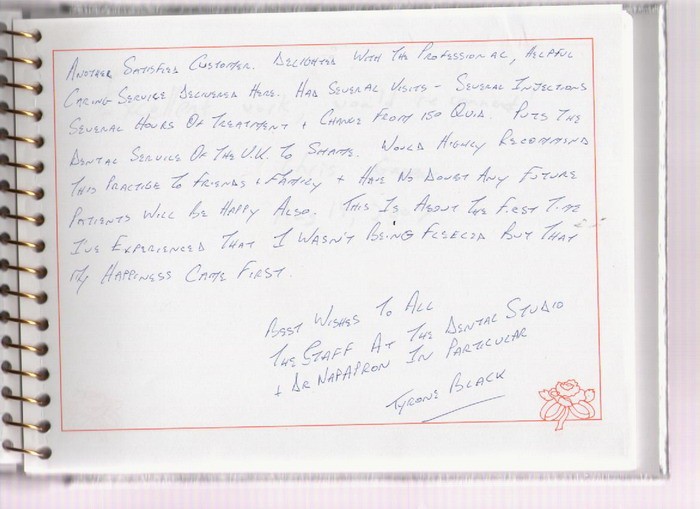 Another Satisfied Customer. Delighted With The Professional, Helpful
Caring Service Delivered Here. Had Several Visits - Several Injections
Several Hours Of Treatment + Change From 150 Quid. Puts The
Dental Service Of The U.K. To Shame. Would Highly Recommend
This Practice To Friends & Family + Have No Doubt Any Future
Patients Will Be Happy Also. This Is About The First Time
I've Experienced That I Wasn't Being Fleeced But That
My Happiness Came First.
Best Wishes To All
The Staff At The Dental Studio
+ Dr Napapron In Particular
Tyrone Black